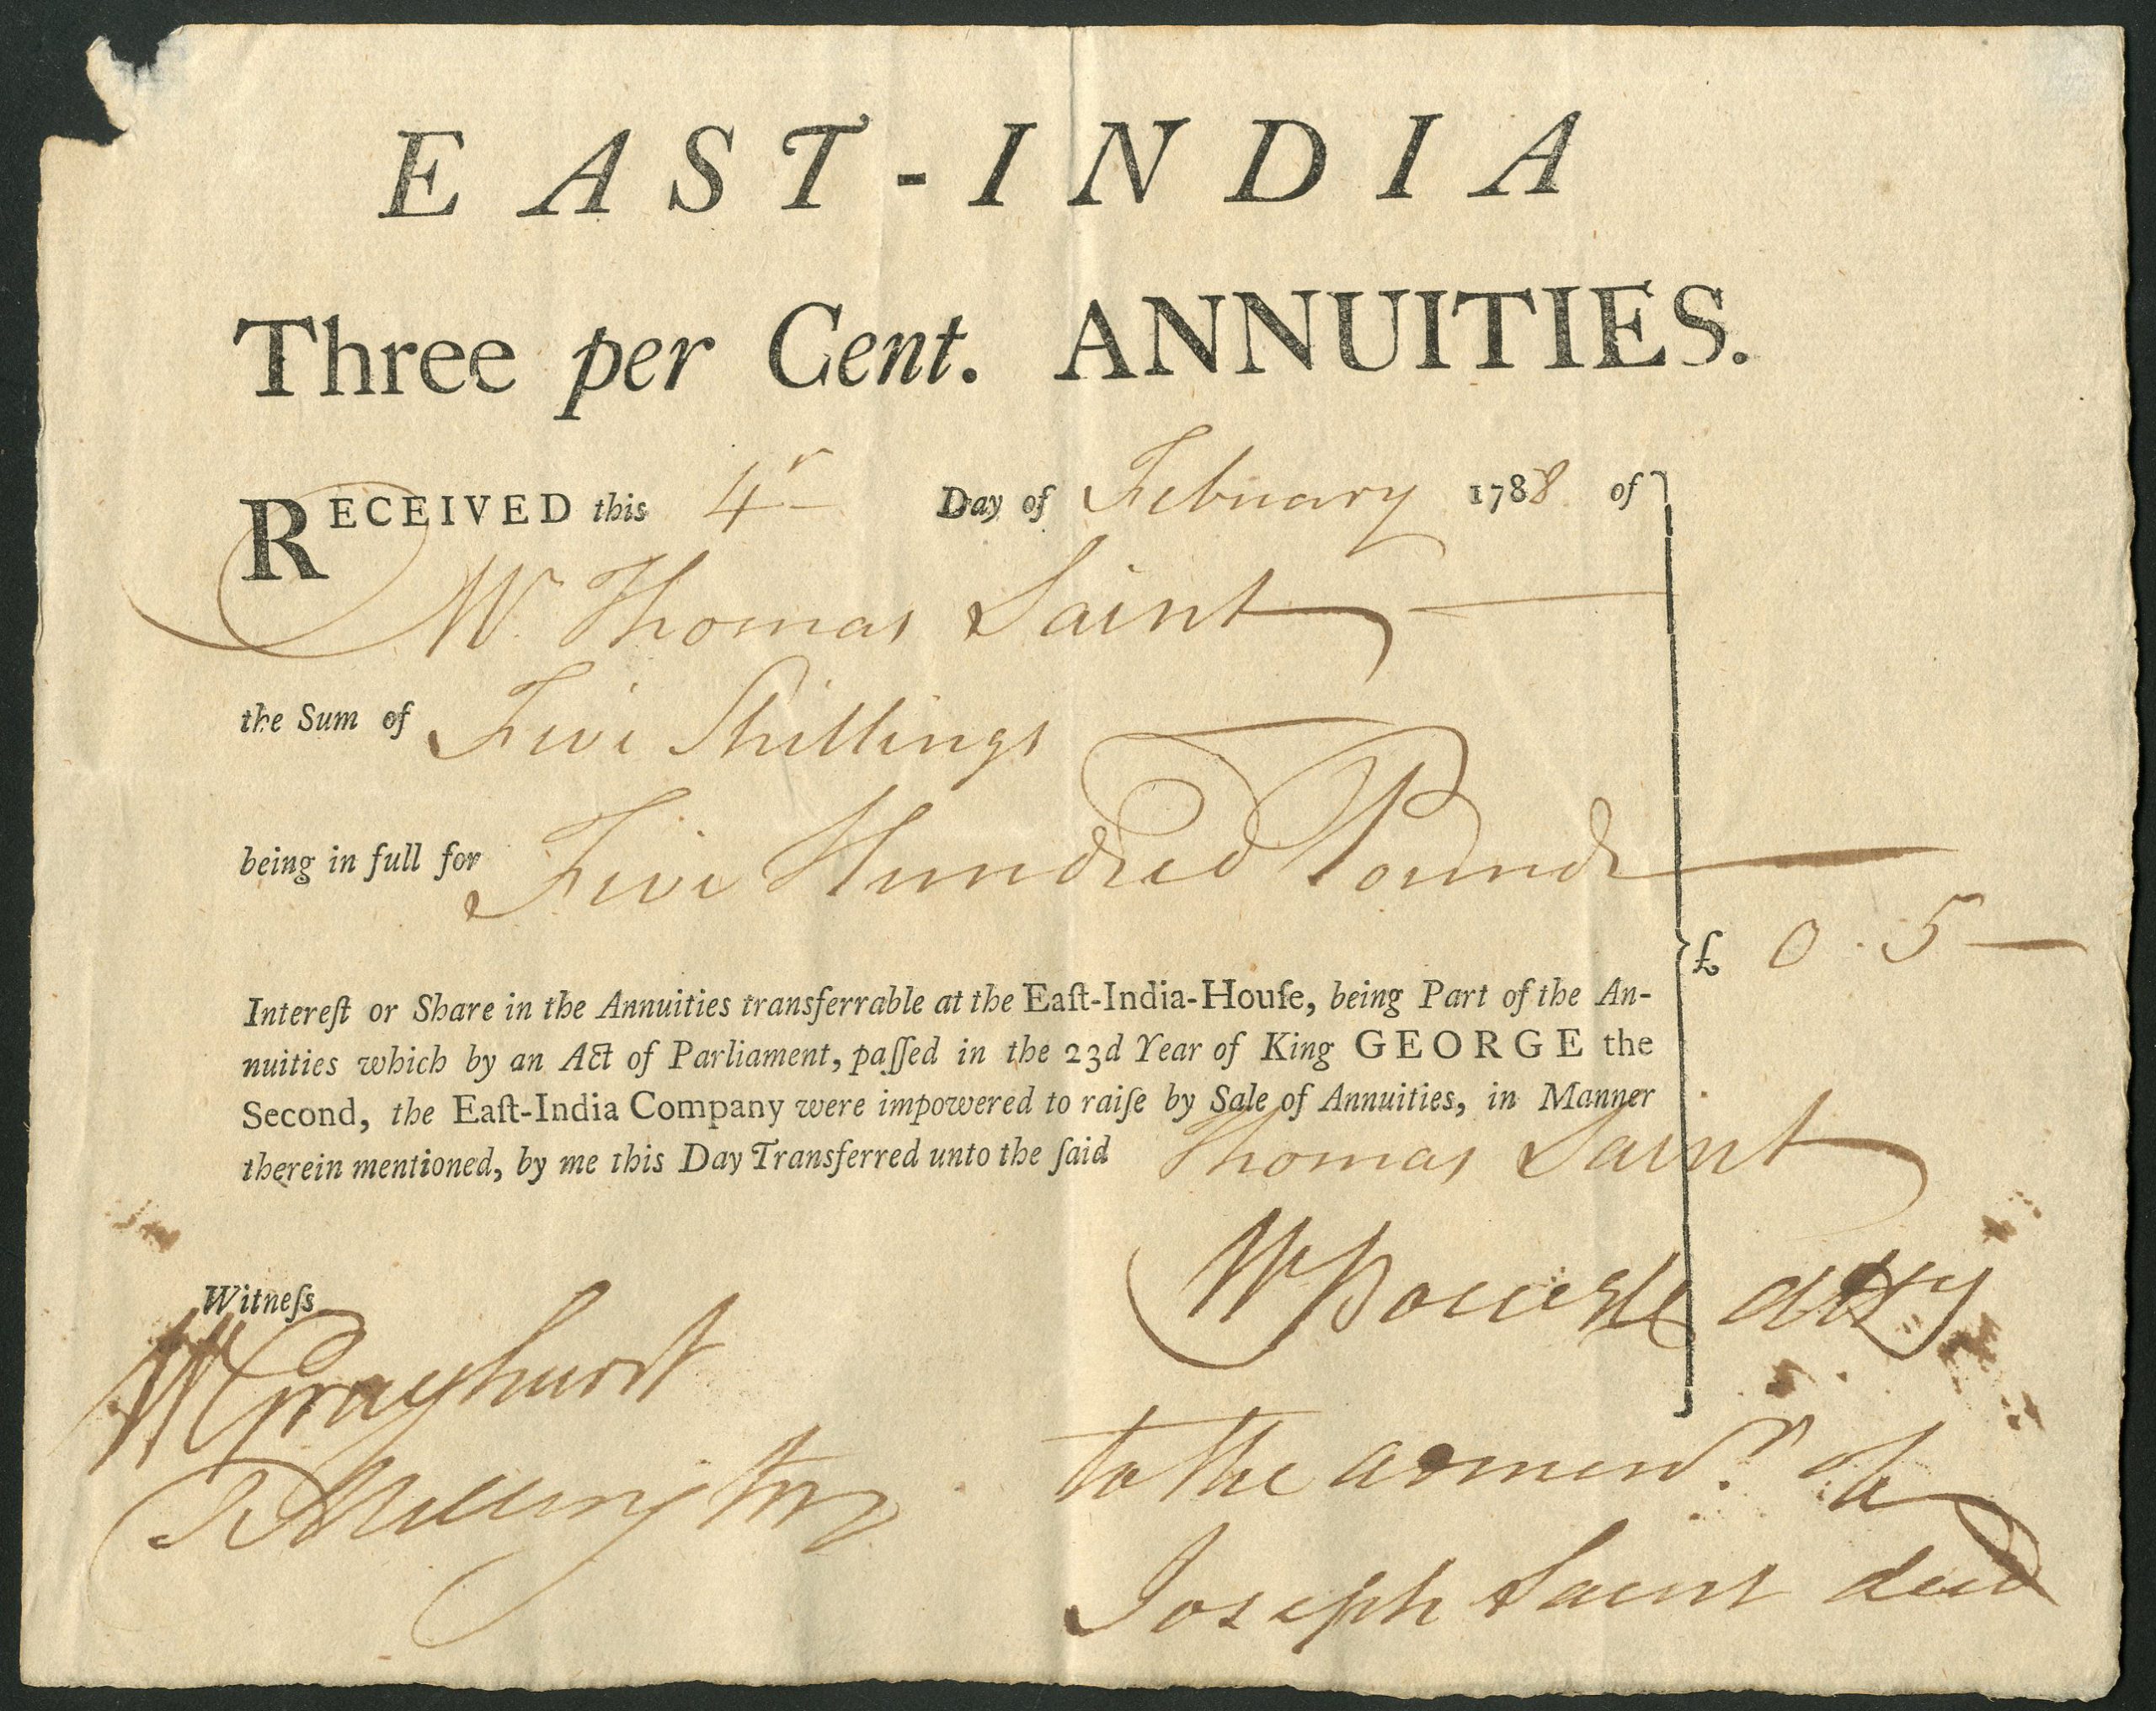 EAST-INDIA
Three per Cent. ANNUITIES.
RECEIVED this 4 Day of February 1788 of
Mr Thomas Saint
the Sum of Five Shillings
being in full for Five Hundred Pounds
£ 0.5—
Intereſt or Share in the Annuities transferrable at the Eaſt-India-Houſe, being Part of the An-
nuities which by an Act of Parliament, paſſed in the 23d Year of King GEORGE the
Second, the Eaſt-India Company were impowered to raiſe by Sale of Annuities, in Manner
therein mentioned, by me this Day Transferred unto the ſaid Thomas Saint
Witneſs
W Grayhurst
atty
to the of
Joseph Saint decd